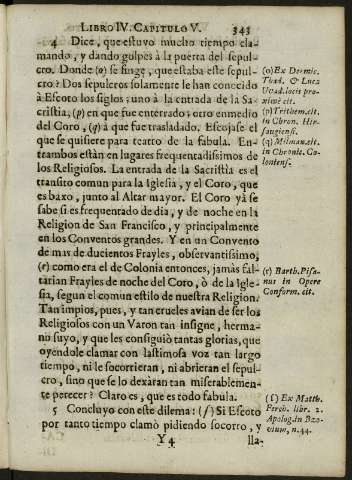 LIBRO IV. CAPITULO V. 343
4 Dice, que estuvo mucho tiempo cla-
mando, y dando golpes à la puerta del sepul-
cro. Donde (o) se finge, que estaba este sepul-
cro? Dos sepulcros solamente le han conocido
à Escoto los siglos; uno à la entrada de la Sa-
cristìa, (p) en que fue enterrado; otro enmedio
del Coro, (q) à que fue trasladado. Escojase el
que se quisiere para teatro de la fabula. En-
trambos estàn en lugares frequentadissimos de
los Religiosos. La entrada de la Sacristìa es el
transito comun para la Iglesia, y el Coro, que
es baxo, junto al Altar mayor. El Coro yà se
sabe si es frequentado de dia, y de noche en la
Religion de San Francisco, y principalmente
en los Conventos grandes. Y en un Convento
de mas de ducientos Frayles, observantissimo,
(r) como era el de Colonia entonces, jamàs fal-
tarian Frayles de noche del Coro, ò de la Igle-
sia, segun el comun estilo de nuestra Religion.
Tan impios, pues, y tan crueles avian de ser los
Religiosos con un Varon tan insigne, herma-
no suyo, y que les consiguiò tantas glorias, que
oyendole clamar con lastimosa voz tan largo
tiempo, ni le socorrieran, ni abrieran el sepul-
cro, sino que se lo dexàran tan miserablemen-
te perecer? Claro es, que es todo fabula.
5 Concluyo con este dilema: (s) Si Escoto
por tanto tiempo clamò pidiendo socorro, y
Y 4 lla-
(o) Ex Dermic.
Thad. & Luca
Uvad. locis pro-
ximè cit.
(p) Trithem. cit.
in Chron. Hir-
saugiensi.
(q) Milman. cit.
in Chronic. Co-
loniens.
(r) Barth. Pisa-
nus in Opere
Conform. cit.
(s) Ex Matth.
Ferch. libr. 2.
Apolog. in Bzo-
vium, n. 44.